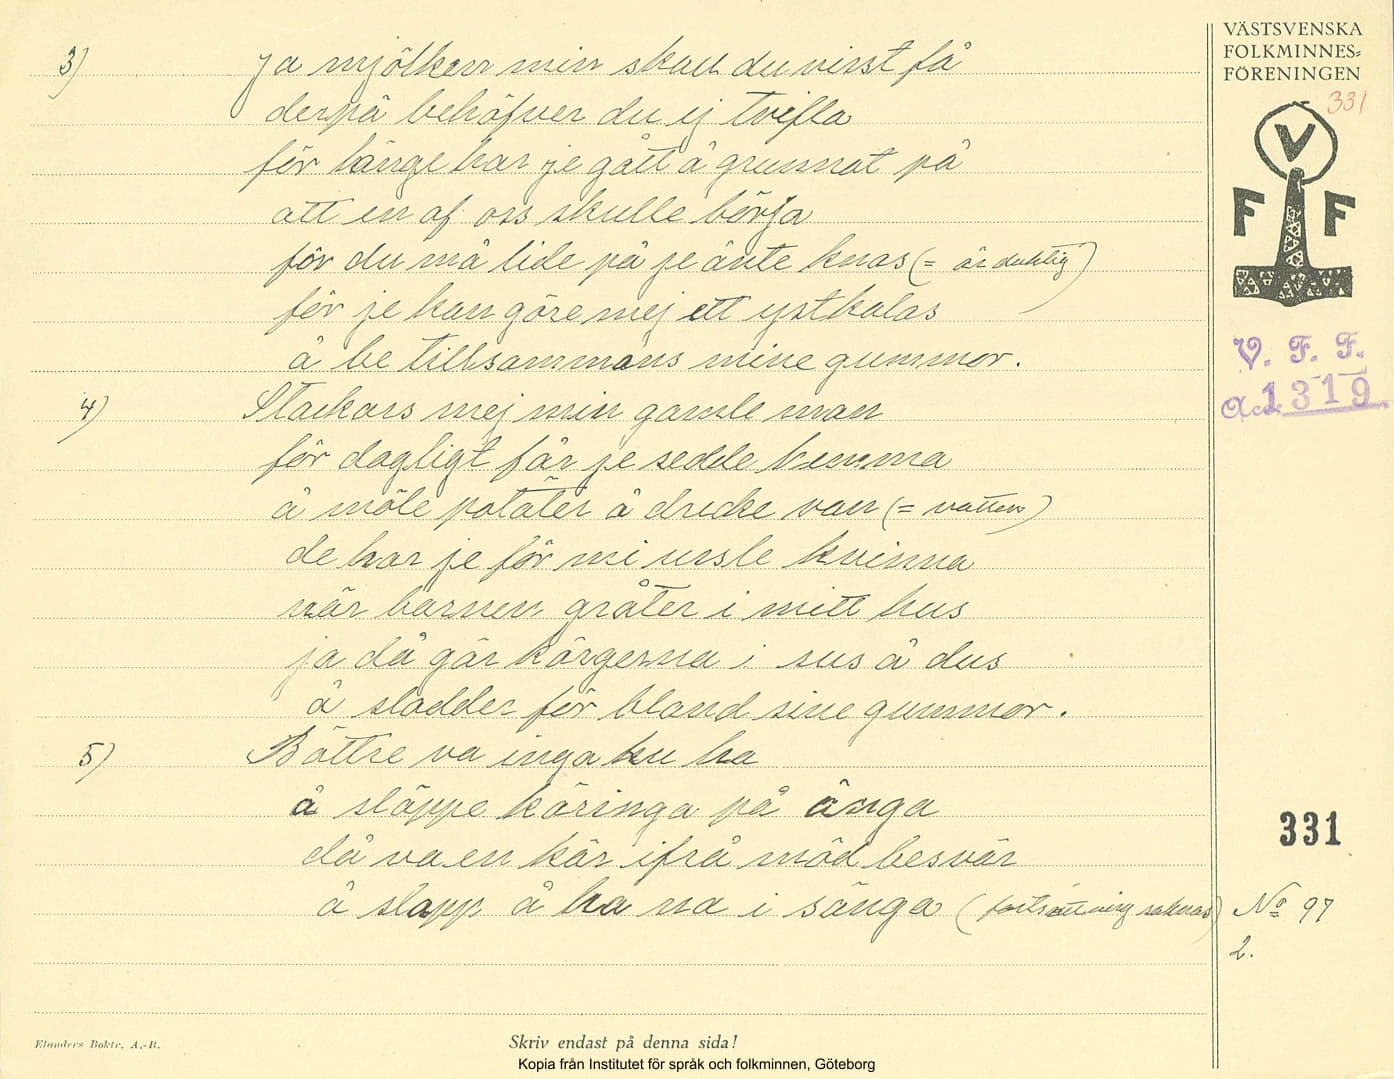 VÄSTSVENSKA
FOLKMINNES=
FÖRENINGEN
331
V
F F
V. F. F.
Acc. 1319
3) Ja mjölken min skall du visst få
derpå behöfver du ej tvifla
för länge har je gått å grunnat på
att en af oss skulle börja
för du må lide på je änte knas (= är duktig)
för je kan göre mej ett ystkalas
å be tillsammans mine gummor.
4) Stackars mej min gamle man
för dagligt får je sedde hemma
å möle potäter å drecke van (= vatten)
de har je för mi usle kvinna
när barnen gråter i mitt hus
ja då går kärgerna i sus å dus
å sladder för bland sine gummor.
5) Bättre va inga ku ha
å släppe käringa på änga
då va en kär ifrå möd besvär
å slapp å ha na i sänga (fortsättning saknas)
331
No 97
2.
Elanders Boktr. A.-B.
Skriv endast på denna sida!
Kopia från Institutet för språk och folkminnen, Göteborg